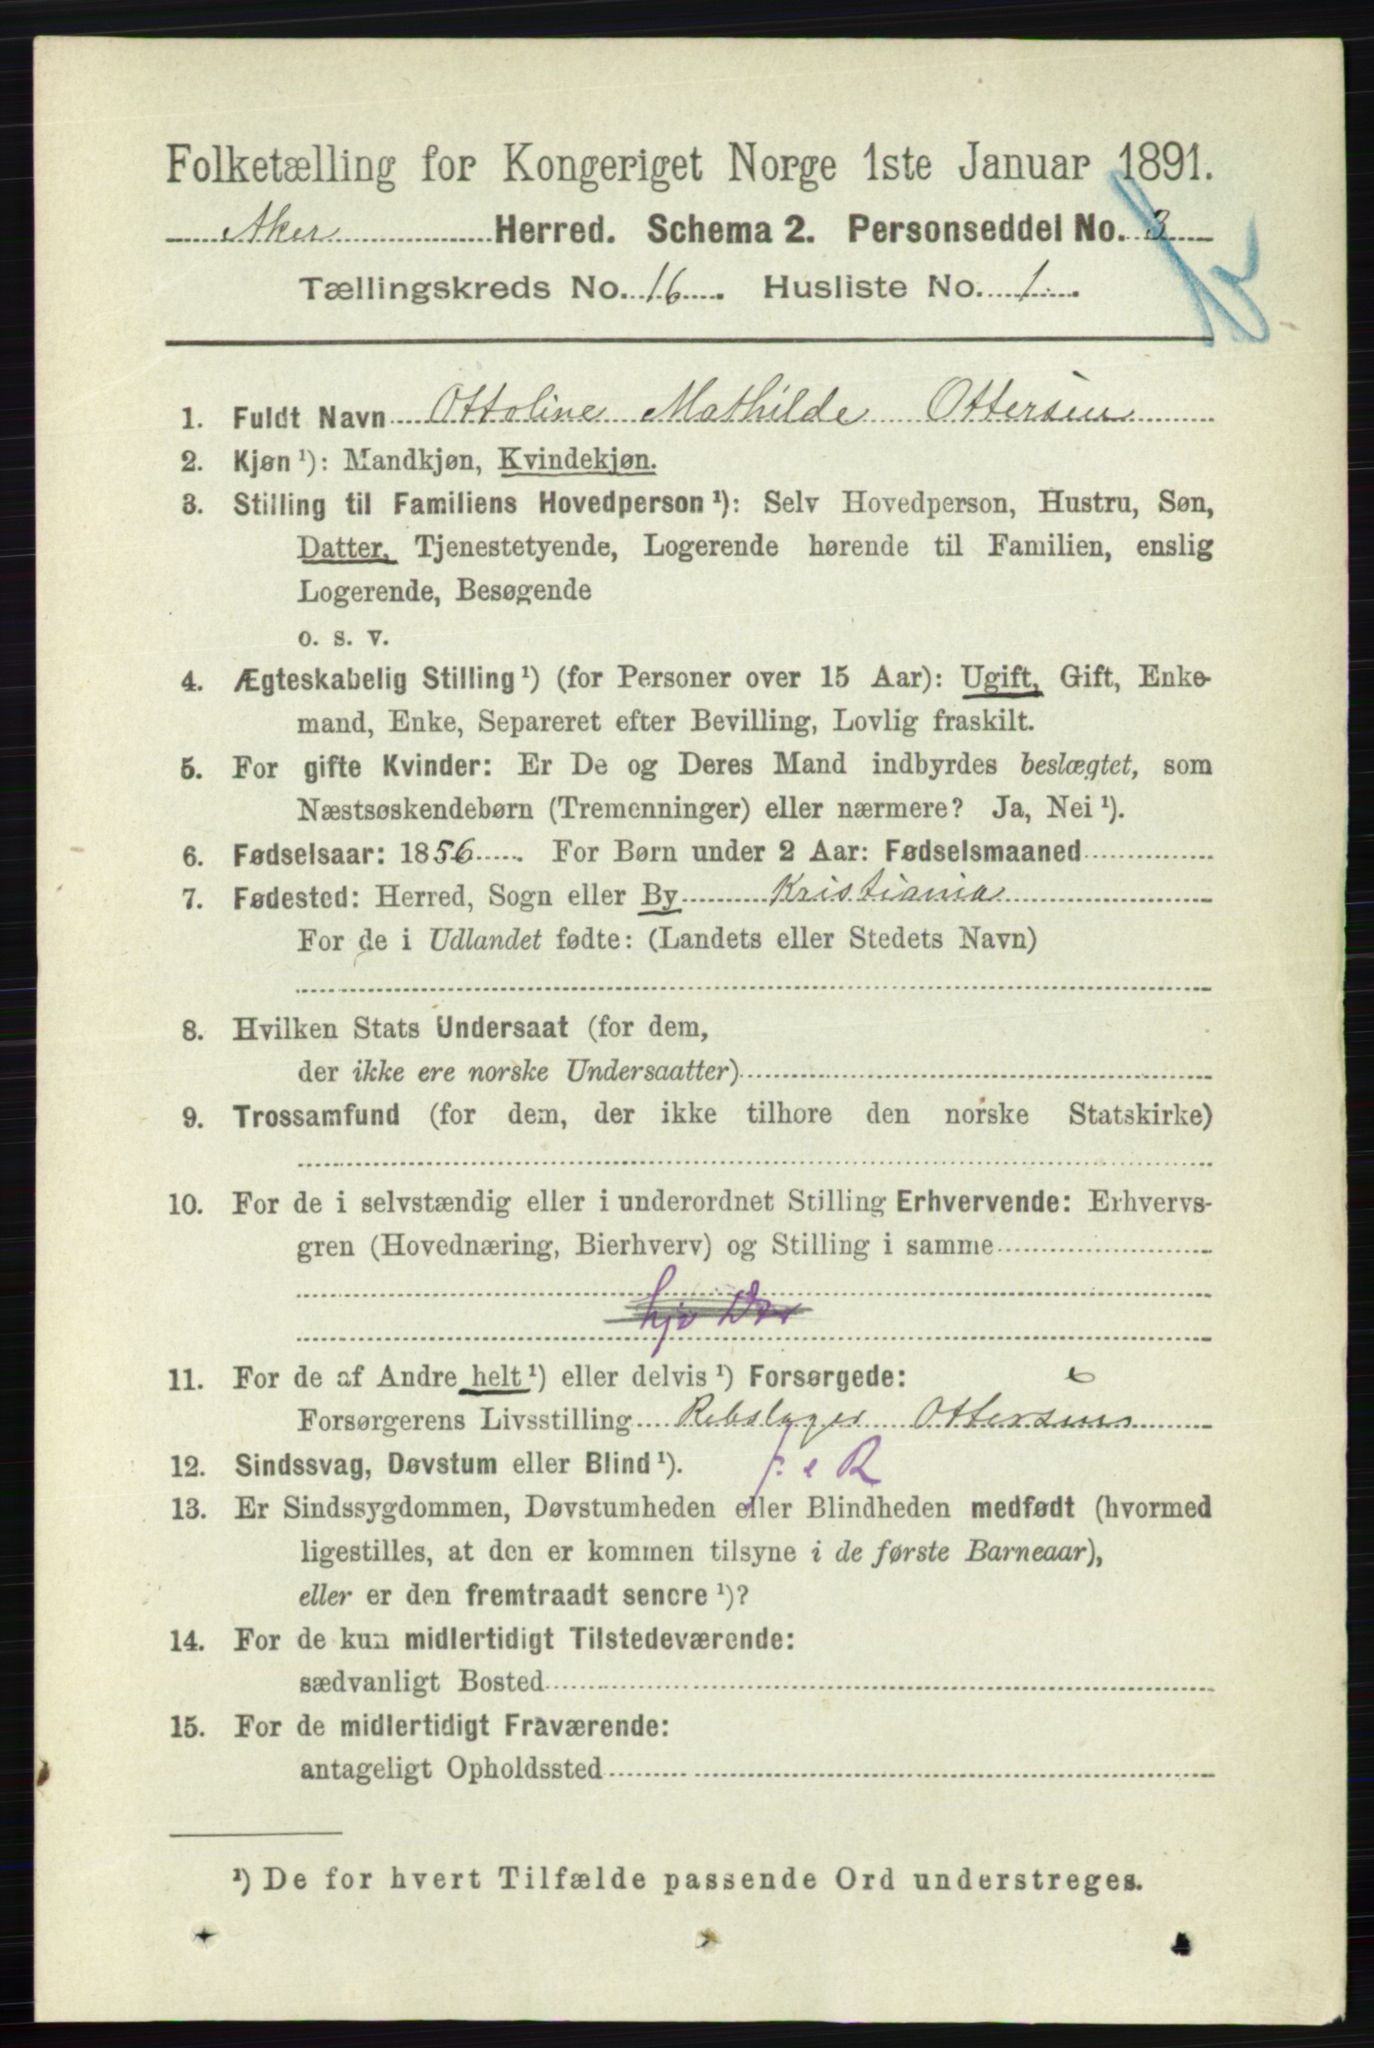 Folketælling for Kongeriget Norge 1ste Januar 1891.
Aker Herred. Schema 2. Personseddel No. 3
Tællingskreds No. 16. Husliste No. 1.
1. Fuldt Navn Ottoline Mathilde Ottersen
2. Kjøn ¹): Mandkjøn, Kvindekjøn.
3. Stilling til Familiens Hovedperson ¹): Selv Hovedperson, Hustru, Søn,
Datter, Tjenestetyende, Logerende hørende til Familien, enslig
Logerende, Besøgende
o. s. v.
4. Ægteskabelig Stilling ¹) (for Personer over 15 Aar): Ugift, Gift, Enke-
mand, Enke, Separeret efter Bevilling, Lovlig fraskilt.
5. For gifte Kvinder: Er De og Deres Mand indbyrdes beslægtet, som
Næstsøskendebørn (Tremenninger) eller nærmere? Ja, Nei ¹).
6. Fødselsaar: 1856. For Børn under 2 Aar: Fødselsmaaned
7. Fødested: Herred, Sogn eller By Kristiania
For de i Udlandet fødte: (Landets eller Stedets Navn)
8. Hvilken Stats Undersaat (for dem,
der ikke ere norske Undersaatter)
9. Trossamfund (for dem, der ikke tilhøre den norske Statskirke)
10. For de i selvstændig eller i underordnet Stilling Erhvervende: Erhvervs-
gren (Hovednæring, Bierhverv) og Stilling i samme
11. For de af Andre helt ¹) eller delvis ¹) Forsørgede:
Forsørgerens Livsstilling Rebslager Ottersens
12. Sindssvag, Døvstum eller Blind ¹).
13. Er Sindssygdommen, Døvstumheden eller Blindheden medfødt (hvormed
ligestilles, at den er kommen tilsyne i de første Barneaar),
eller er den fremtraadt senere ¹)?
14. For de kun midlertidigt Tilstedeværende:
sædvanligt Bosted
15. For de midlertidigt Fraværende:
antageligt Opholdssted
¹) De for hvert Tilfælde passende Ord understreges.